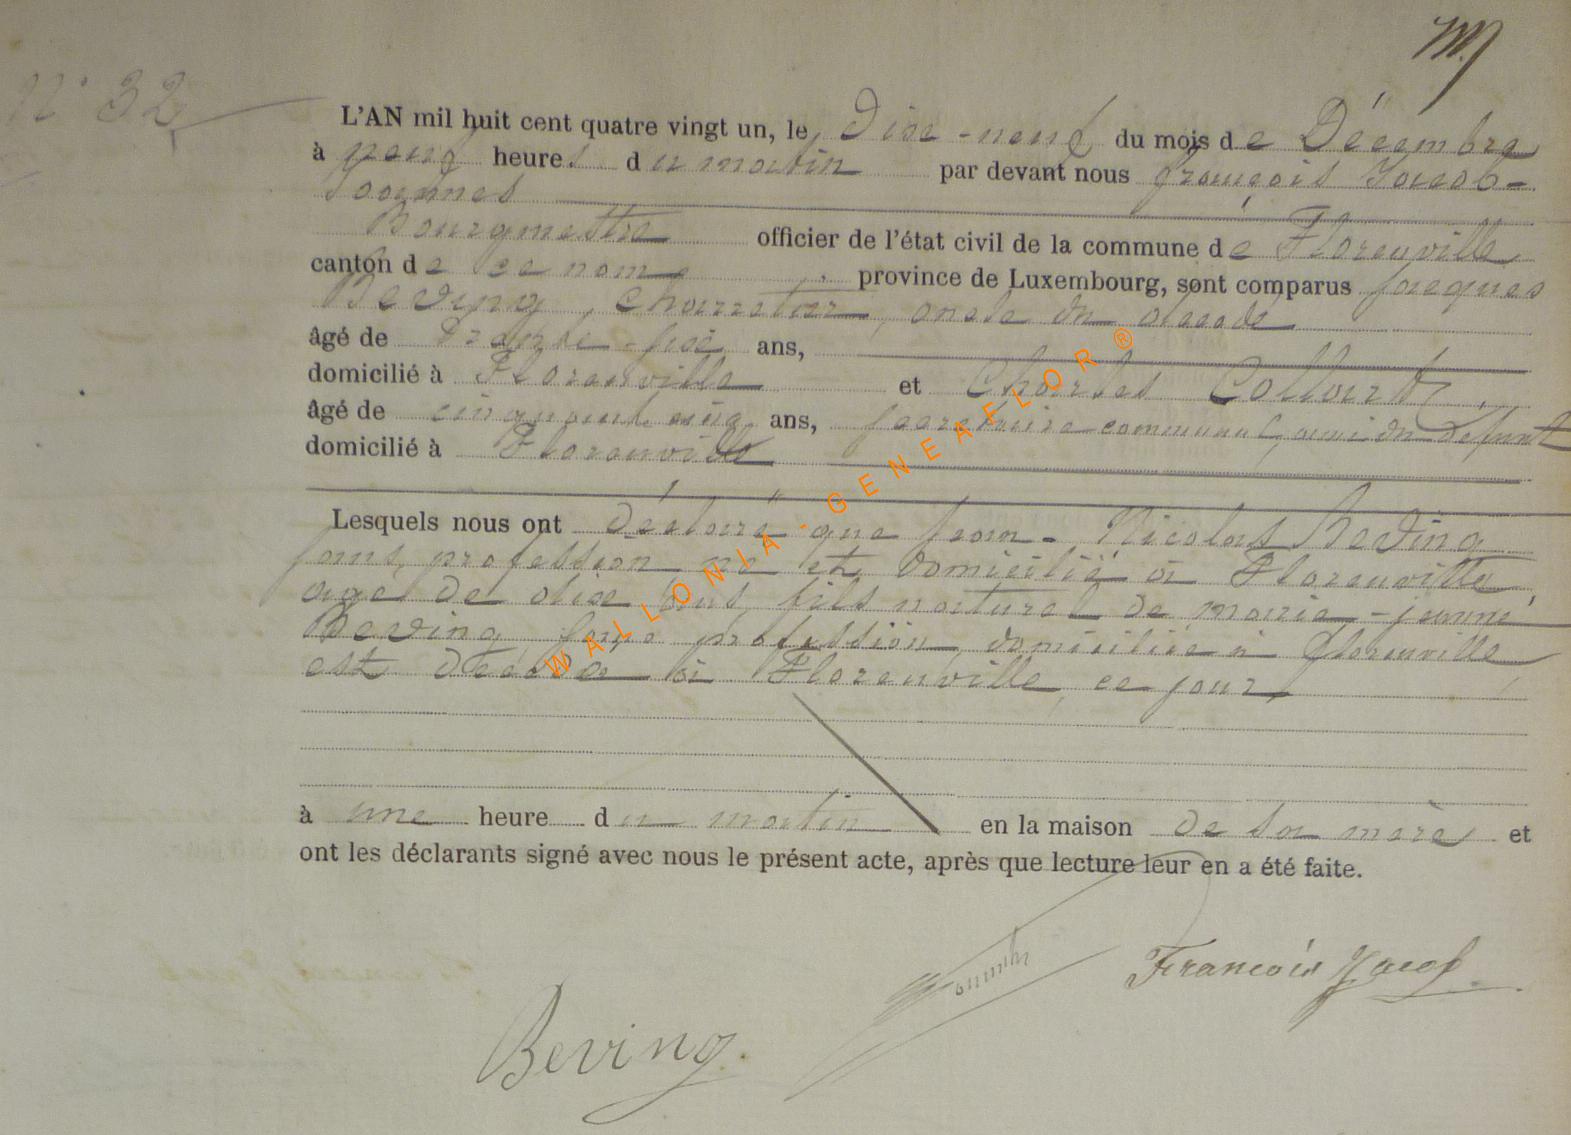 N° 32
L'AN mil huit cent quatre vingt un, le dix-neuf du mois de Décembre
à neuf heures du matin par devant nous François Jacob-
Joannes
Bourgmestre officier de l'état civil de la commune de Florenville
canton de ce nom province de Luxembourg, sont comparus Jacques
Beving, charretier, oncle du décédé
âgé de trente-six ans,
domicilié à Florenville et Charles Collart,
âgé de cinquante ans, secrétaire communal, ami du défunt
domicilié à Florenville
Lesquels nous ont déclaré que Jean-Nicolas Beving
sans profession né et domicilié à Florenville
agé de dix ans, fils naturel de marie-jeanne
Beving sans profession, domiciliée à Florenville
est décédé à Florenville, ce jour,
à une heure du matin en la maison de sa mère, et
ont les déclarants signé avec nous le présent acte, après que lecture leur en a été faite.
François Jacob
Beving.
WALLONIA - GENEAFLOR ®